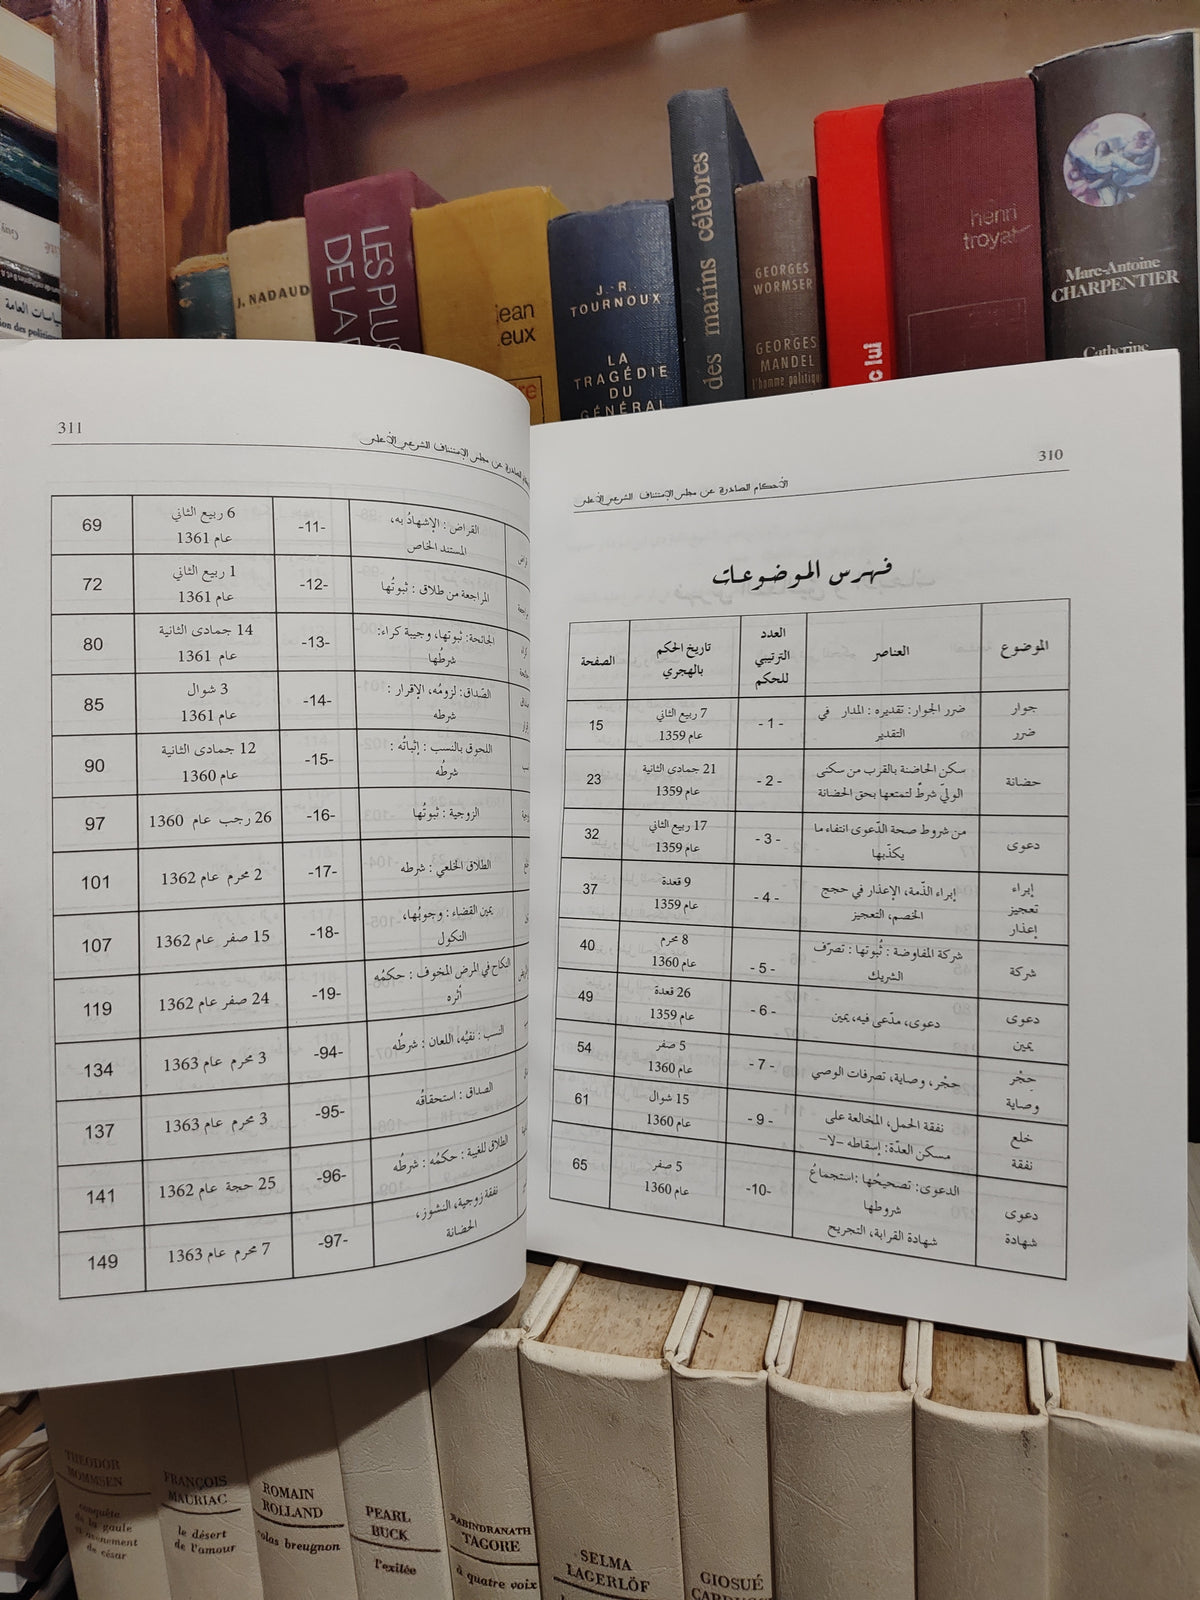 J. NADAUD
LES PLUS
DE LA
jean
eux
J.-R.
TOURNOUX
LA
TRAGÉDIE
DU
GÉNÉRAL
des marins célèbres
GEORGES
WORMSER
GEORGES
MANDEL
l'homme politique
henri
troyat
Marc-Antoine
CHARPENTIER
Catherine
310
الأحكام الصادرة عن مجلس الإستئناف الشرعي الأعلى
فهرس الموضوعات
الموضوع | العناصر | العدد الترتيبي للحكم | تاريخ الحكم بالهجري | الصفحة
جوار ضرر | ضرر الجوار: تقديره: المدار في التقدير | - 1 - | 7 ربيع الثاني عام 1359 | 15
حضانة | سكن الحاضنة بالقرب من سكنى الوليّ شرطٌ لتمتعها بحق الحضانة | - 2 - | 21 جمادى الثانية عام 1359 | 23
دعوى | من شروط صحة الدّعوى انتفاء ما يكذّبها | - 3 - | 17 ربيع الثاني عام 1359 | 32
إبراء تعجيز إعذار | إبراء الذّمة، الإعذار في حجج الخصم، التعجيز | - 4 - | 9 قعدة عام 1359 | 37
شركة | شركة المفاوضة : ثُبوتها : تصرّف الشريك | - 5 - | 8 محرم عام 1360 | 40
دعوى يمين | دعوى، مدّعى فيه، يمين | - 6 - | 26 قعدة عام 1359 | 49
حجْر وصاية | حجْر، وصاية، تصرفات الوصي | - 7 - | 5 صفر عام 1360 | 54
خلع نفقة | نفقة الحمل، المخالعة على مسكن العدّة: إسقاطه –لا– | - 9 - | 15 شوال عام 1360 | 61
دعوى شهادة | الدعوى: تصحيحُها :استجماعُ شروطها شهادة القرابة، التجريح | -10- | 5 صفر عام 1360 | 65
311
عن مجلس الإستئناف الشرعي الأعلى
القراض : الإشهادُ به، المستند الخاص | -11- | 6 ربيع الثاني عام 1361 | 69
المراجعة من طلاق : ثبوتُها | -12- | 1 ربيع الثاني عام 1361 | 72
الجائحة: ثبوتها، وجيبة كراء: شرطُها | -13- | 14 جمادى الثانية عام 1361 | 80
الصّداق: لزومُه، الإقرار : شرطه | -14- | 3 شوال عام 1361 | 85
اللحوق بالنسب : إثباتُه : شرطُه | -15- | 12 جمادى الثانية عام 1360 | 90
الزوجية : ثبوتُها | -16- | 26 رجب عام 1360 | 97
الطلاق الخلعي : شرطه | -17- | 2 محرم عام 1362 | 101
يمين القضاء : وجوبُها، النكول | -18- | 15 صفر عام 1362 | 107
النكاح في المرض المخوف : حكمُه أثره | -19- | 24 صفر عام 1362 | 119
النسب : نفيُه، اللعان : شرطُه | -94- | 3 محرم عام 1363 | 134
الصداق : استحقاقُه | -95- | 3 محرم عام 1363 | 137
الطلاق للغيبة : حكمُه : شرطُه | -96- | 25 حجة عام 1362 | 141
نفقة زوجية، النشوز، الحضانة | -97- | 7 محرم عام 1363 | 149
THEODOR
MOMMSEN
conquête
de la gaule
et avènement
de césar
FRANÇOIS
MAURIAC
le désert
de l'amour
ROMAIN
ROLLAND
colas breugnon
PEARL
BUCK
l'exilée
RABINDRANATH
TAGORE
à quatre voix
SELMA
LAGERLÖF
GIOSUÉ